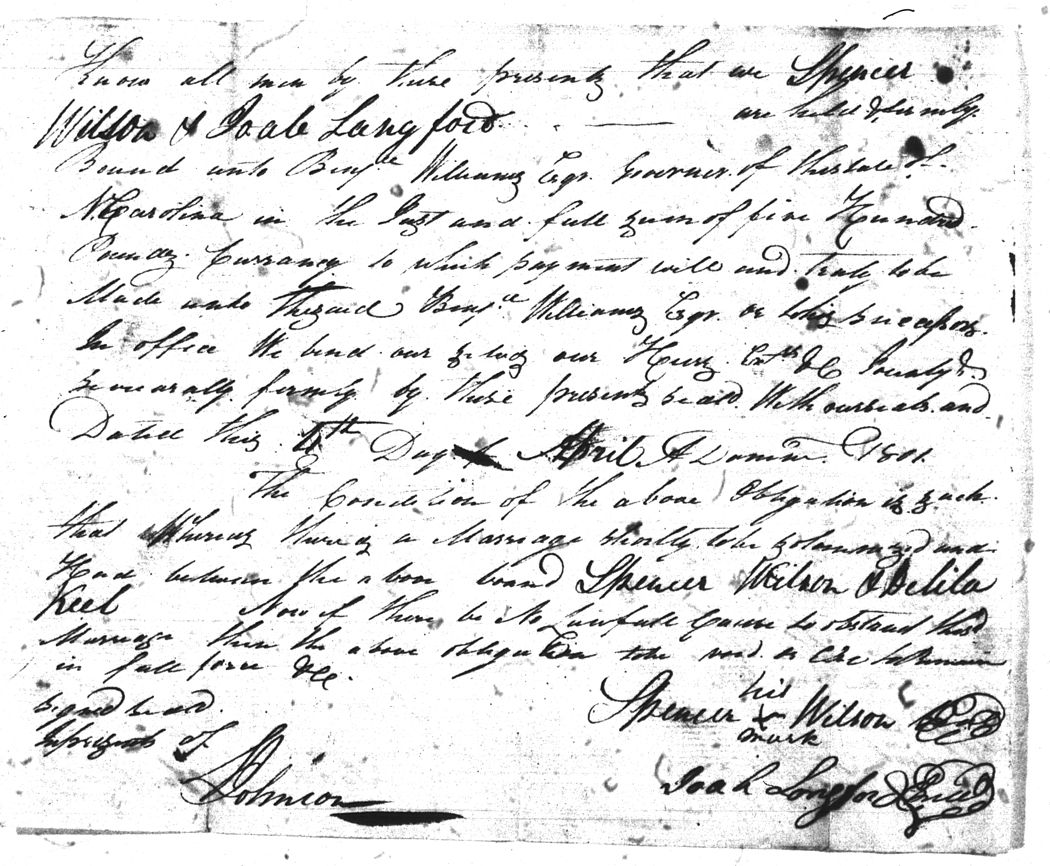 Know all men by these presents that we Spencer
Wilson & Joab Langford are held & firmly
Bound unto Benjn Williams Esqr Governer of the state of
N Carolina in the Just and full sum of five Hundred
Pounds Currancy to which payment well and truly to be
Made unto the said Benjn Williams Esqr or to his sucessors
In office We bind our selves our Heirs Exrs &C Jointly &
severally firmly by these presents seald With our seals and
Dated this Day of April A Domini 1801
The Condition of the above Obligation is such
that Whereas there is a Marriage shortly to be solemnized and
Had between the above bound Spencer Wilson & Delila
Keel Now if there be No Lawfull Cause to obstruct this
Marriage then the above obligation to be void or Else to Remain
in full force &c.
signed seald
In presents of
Spencer his x mark Wilson Seal
Johnson
Joab Longford Seal